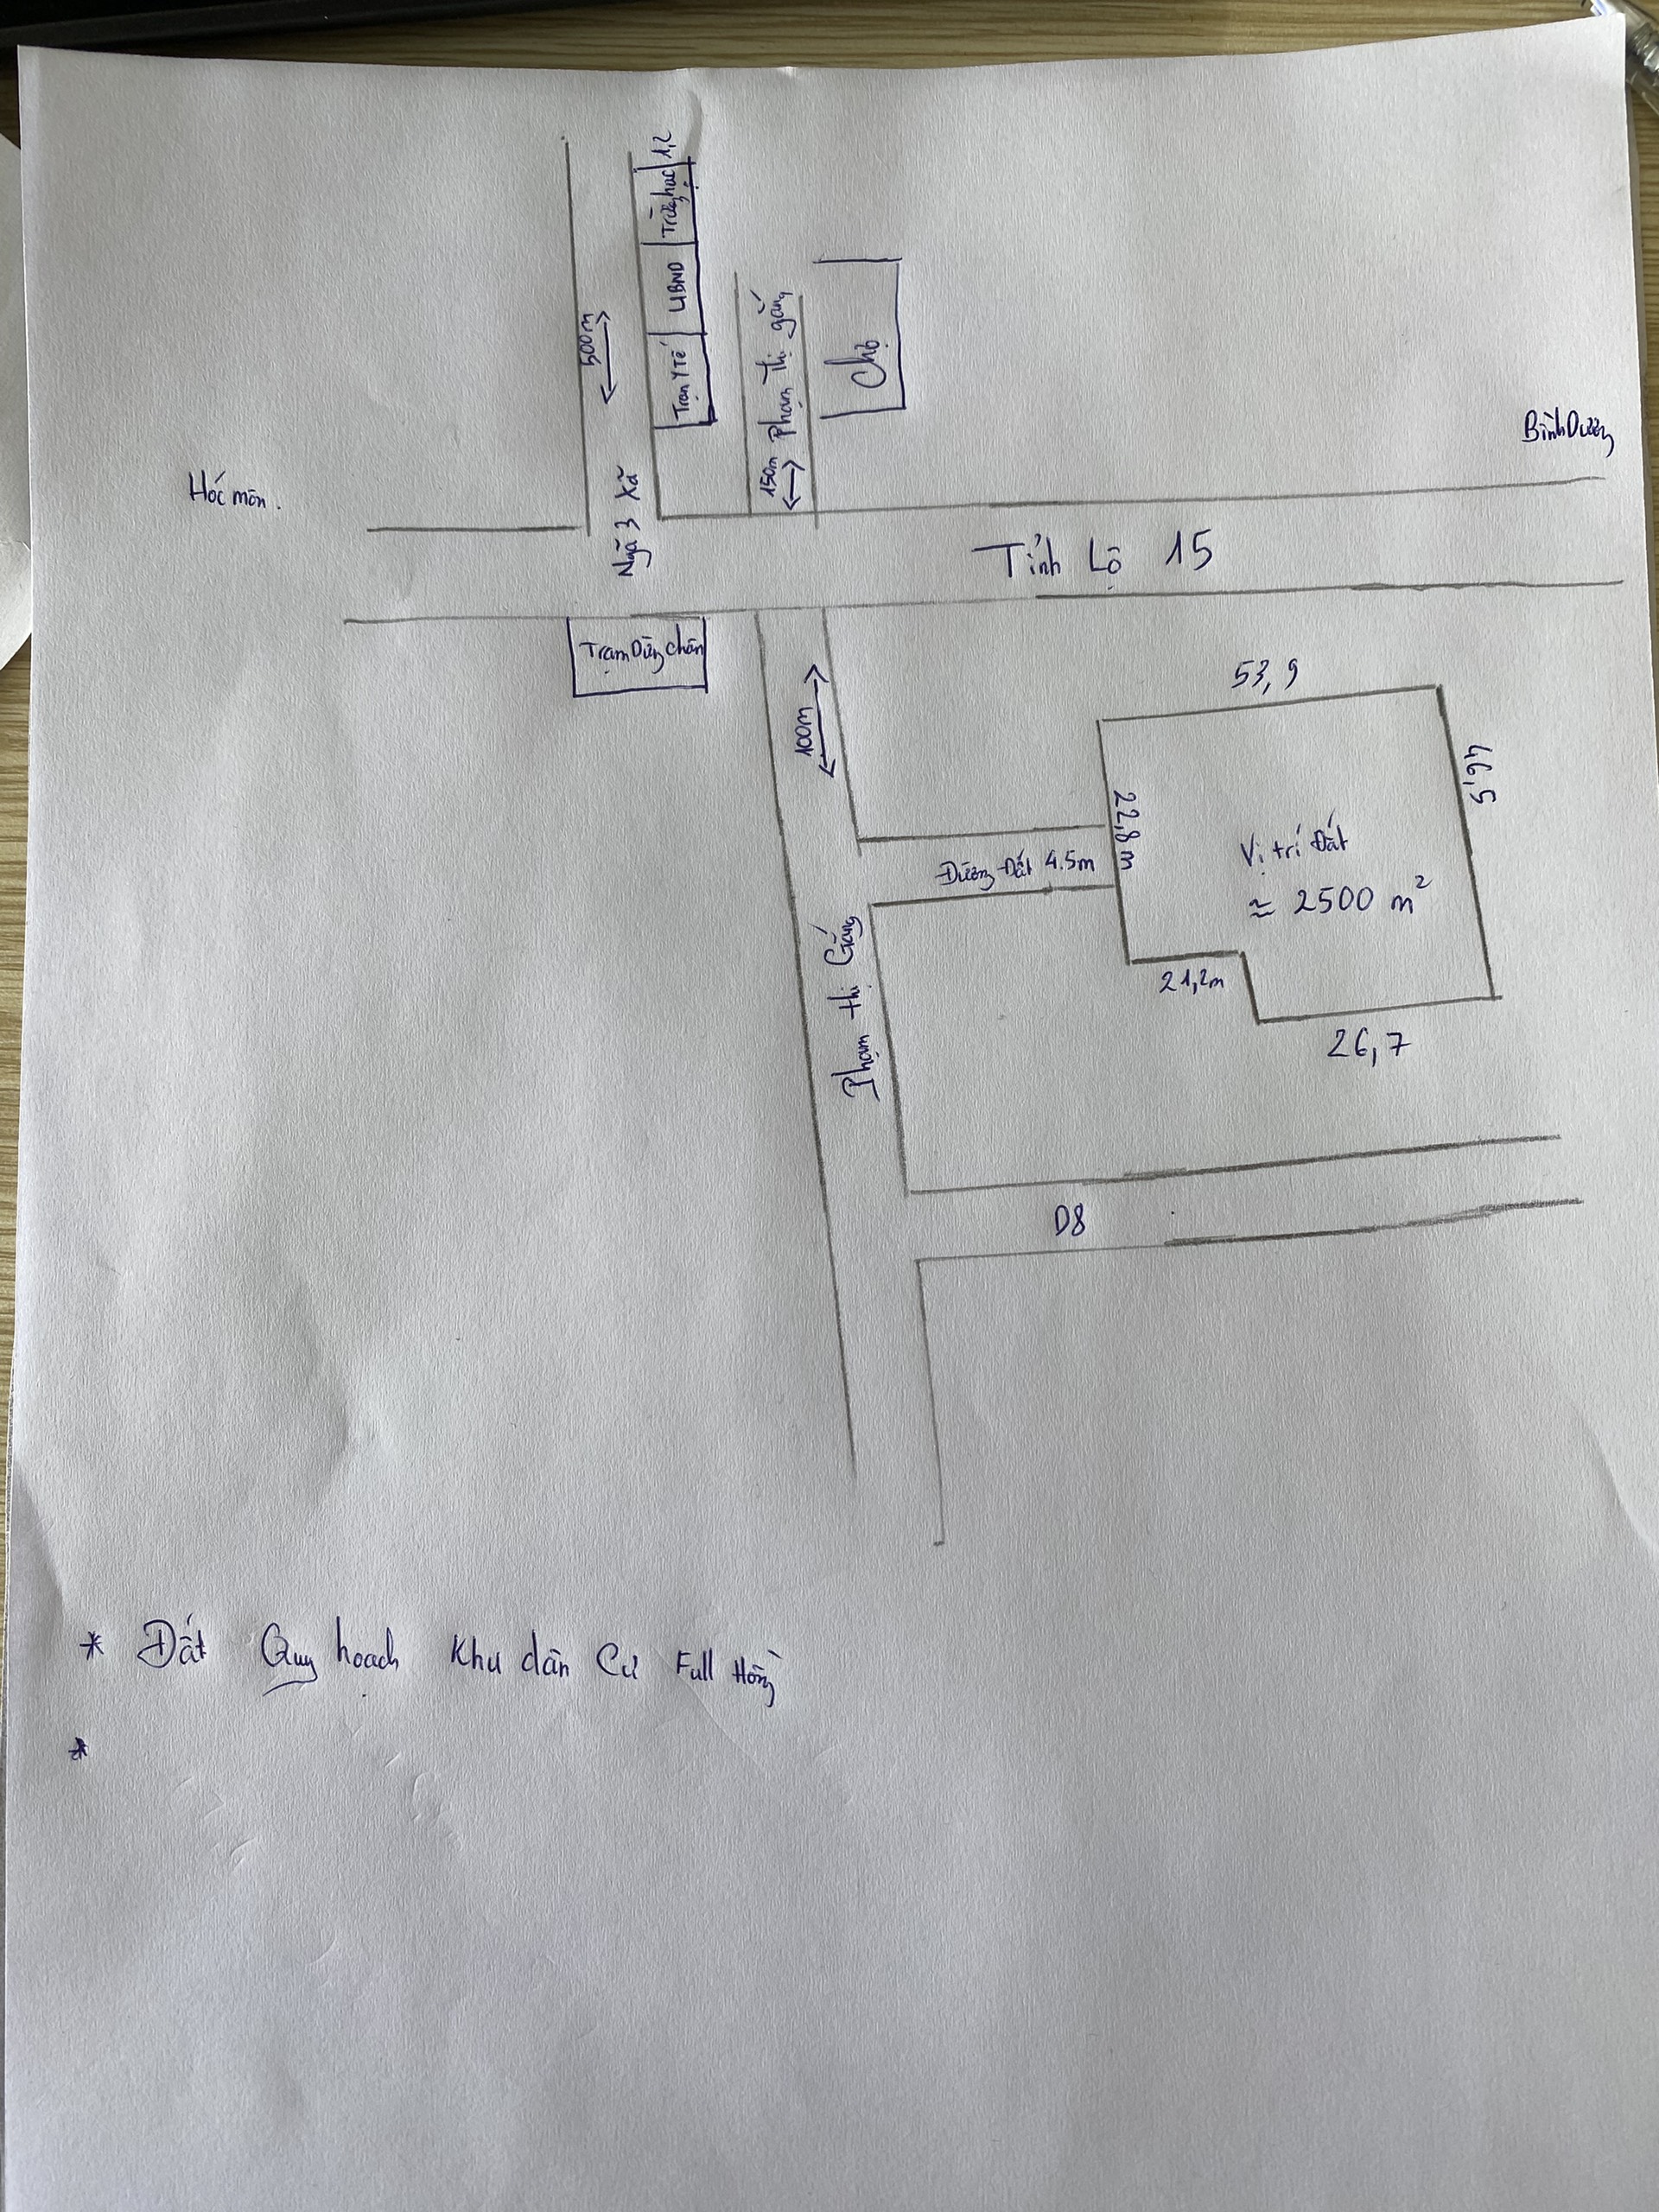 Trường học 1,2
UBND
Trạm Y Tế
500m
Ngã 3 Xã
Phạm Thị gắng
150m
Chợ
Bình Dương
Hóc môn.
Tỉnh Lộ 15
Trạm Dừng chân
100m
53,9
46,5
22,8m
Vị trí Đất
≈ 2500 m²
Đường Đất 4.5m
21,2m
26,7
Phạm thị Gắng
D8
* Đất Quy hoạch Khu dân Cư Full Hồng
*